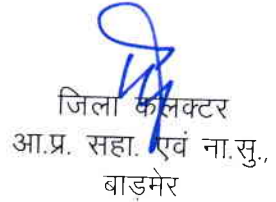 जिला कलक्टर
आ.प्र. सहा. एवं ना.सु.,
बाड़मेर